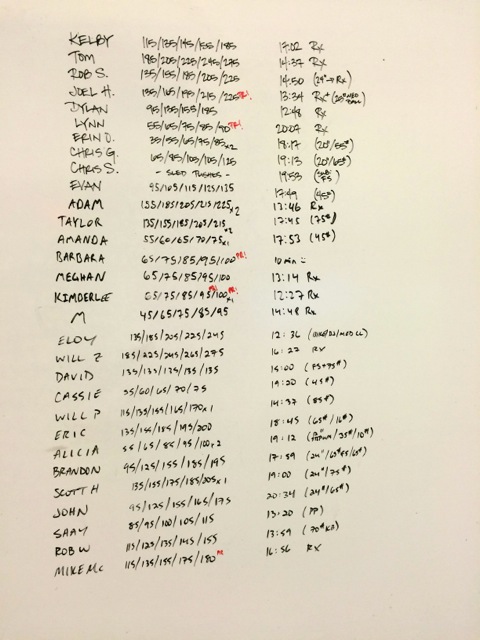 KELBY 115/135/145/155/185 17:02 Rx
TOM 185/205/225/245/275 14:37 Rx
ROB S. 135/155/185/205/225 14:50 (24"→Rx)
JOEL H. 135/165/195/215/225 PR! 13:34 Rx+
DYLAN 95/135/155/185 12:48 Rx
LYNN 55/65/75/85/90 PR! 20:07 Rx
ERIN D. 35/55/65/75/85x2 18:17 (20"/55#)
CHRIS G. 65/85/105/105/125 19:13 (20"/65#)
CHRIS S. - SLED PUSHES - 19:53
EVAN 95/105/115/125/135 17:49 (95#)
ADAM 155/185/205/215/225x2 13:46 Rx
TAYLOR 135/155/185/205/215x2 17:45 (75#)
AMANDA 55/60/65/70/75x1 17:53 (45#)
BARBARA 65/75/85/95/100 PR! 10 min :)
MEGHAN 65/75/85/95/100 13:14 Rx
KIMBERLEE 65/75/85/95/100x1 PR! PR! 12:27 Rx
M 45/65/75/85/95 14:48 Rx
ELOY 135/185/205/225/245 12:36
WILL Z 185/225/245/265/275 16:22 RX
DAVID 135/135/135/135/135 15:00
CASSIE 55/60/65/70/75 19:20 (45#)
WILL P 115/135/155/165/170x1 14:37 (85#)
ERIC 135/155/185/195/200 18:45 (65#/16#)
ALICIA 55/65/85/95/100x2 19:12
BRANDON 95/125/155/185/195 17:59 (24"/65#)
SCOTT H 135/155/175/185/205x1 19:00 (24"/75#)
JOHN 95/125/155/165/175 20:34 (24"/65#)
SAAY 85/95/100/105/115 13:20 (PP)
ROB W 115/125/135/145/155 13:59 (70# KB)
MIKE MC 115/135/155/175/180 PR 16:56 RX